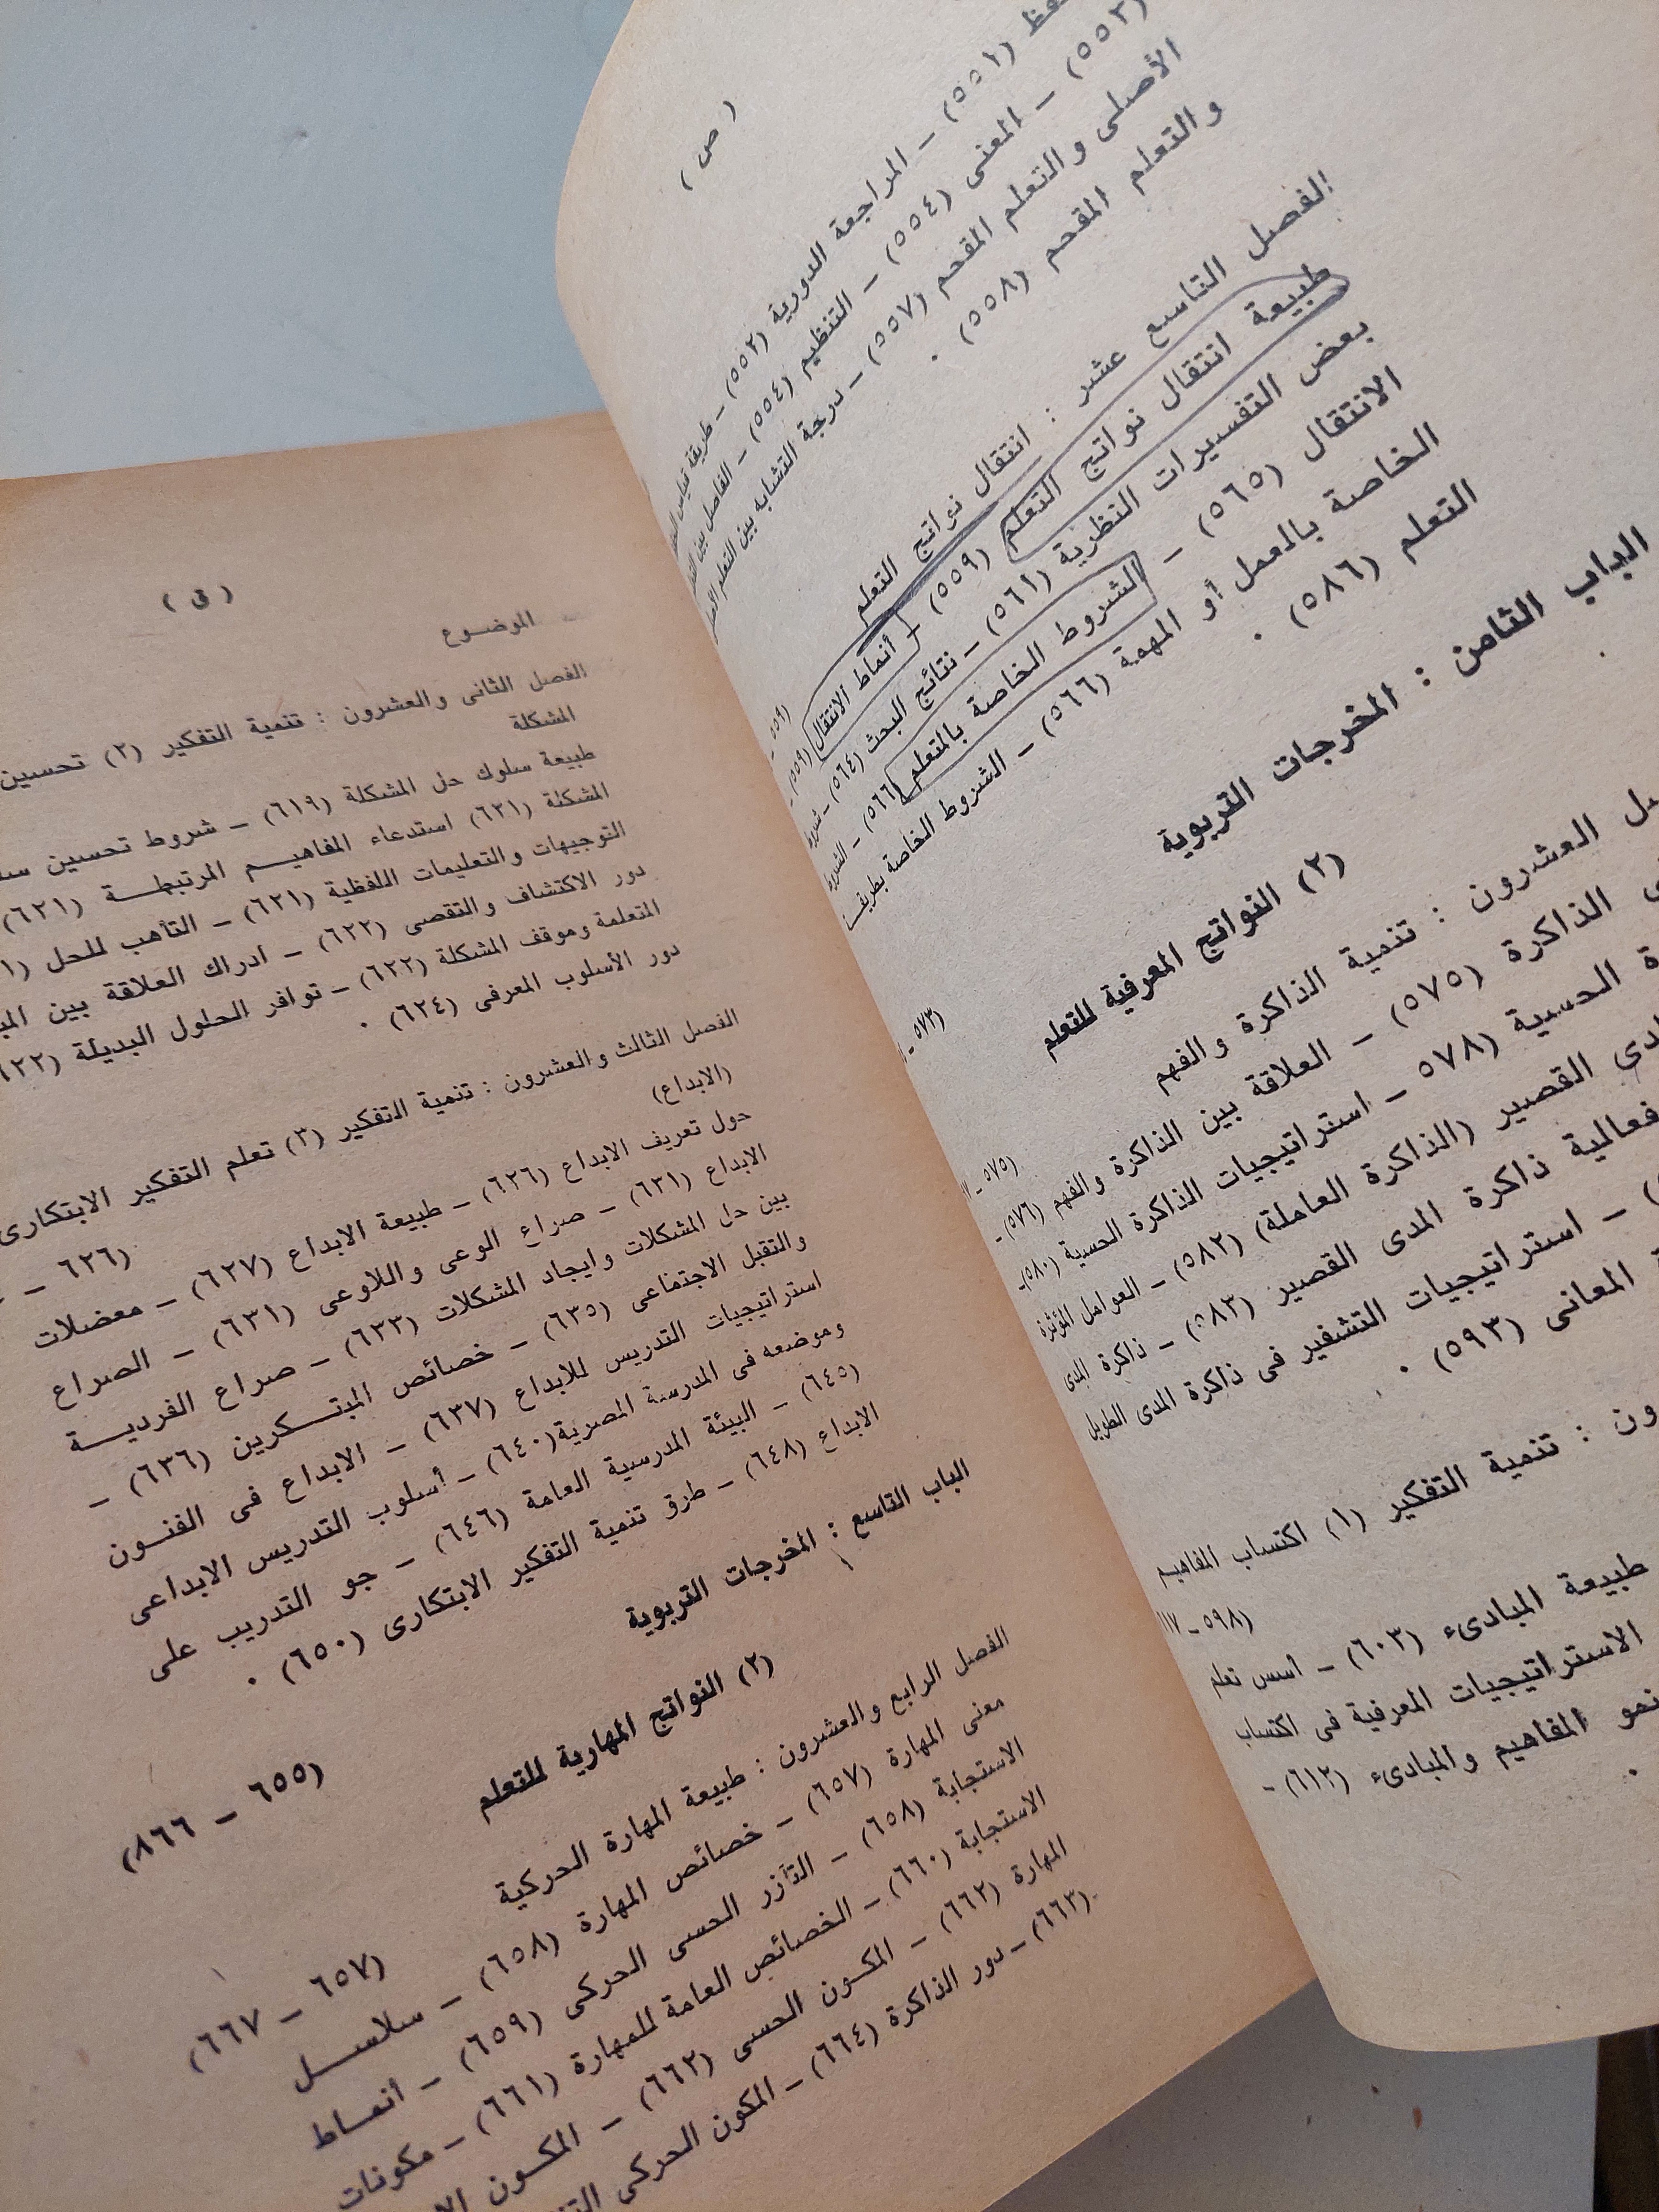 ( ص )
(٥٥١) – المراجعة الدورية (٥٥٢) – طريقة قياس
(٥٥٣) – المعنى (٥٥٤) – التنظيم (٥٥٤) – الفاصل بين
الأصلى والتعلم المقحم (٥٥٧) – درجة التشابه بين التعلم
والتعلم المقحم (٥٥٨) .
الفصل التاسع عشر : انتقال نواتج التعلم
طبيعة انتقال نواتج التعلم (٥٥٩) – أنماط الانتقال (٥٥٩) –
بعض التفسيرات النظرية (٥٦١) – نتائج البحث (٥٦٤) – شروط
الانتقال (٥٦٥) – الشروط الخاصة بالمتعلم (٥٦٦) – الشروط
الخاصة بالعمل أو المهمة (٥٦٦) – الشروط الخاصة بطريقة
التعلم (٥٨٦) .
الباب الثامن : المخرجات التربوية
(٢) النواتج المعرفية للتعلم
(٥٧٣ –
العشرون : تنمية الذاكرة والفهم
(٥٧٥ –
الذاكرة (٥٧٥) – العلاقة بين الذاكرة والفهم (٥٧٦) –
الحسية (٥٧٨ – استراتيجيات الذاكرة الحسية (٥٨٠) –
القصير (الذاكرة العاملة) (٥٨٢) – العوامل المؤثرة
فعالية ذاكرة المدى القصير (٥٨٣) – ذاكرة المدى
– استراتيجيات التشفير فى ذاكرة المدى الطويل
المعانى (٥٩٣) .
: تنمية التفكير (١) اكتساب المفاهيم
(٥٩٨ –
طبيعة المبادىء (٦٠٣) – أسس تعلم
الاستراتيجيات المعرفية فى اكتساب
نمو المفاهيم والمبادىء (٦١٢) –
( ق )
الموضوع
الفصل الثانى والعشرون : تنمية التفكير (٢) تحسين
المشكلة
طبيعة سلوك حل المشكلة (٦١٩) – شروط تحسين
المشكلة (٦٢١) استدعاء المفاهيم المرتبطة (٦٢١)
التوجيهات والتعليمات اللفظية (٦٢١) – التأهب للحل
دور الاكتشاف والتقصى (٦٢٢) – ادراك العلاقة بين
المتعلمة وموقف المشكلة (٦٢٢) – توافر الحلول البديلة
دور الأسلوب المعرفى (٦٢٤) .
الفصل الثالث والعشرون : تنمية التفكير (٣) تعلم التفكير الابتكارى
(الابداع)
(٦٢٦ –
حول تعريف الابداع (٦٢٦) – طبيعة الابداع (٦٢٧) – معضلات
الابداع (٦٣١) – صراع الوعى واللاوعى (٦٣١) – الصراع
بين حل المشكلات وايجاد المشكلات (٦٣٣) – صراع الفردية
والتقبل الاجتماعى (٦٣٥) – خصائص المبتكرين (٦٣٦) –
استراتيجيات التدريس للابداع (٦٣٧) – الابداع فى الفنون
وموضعه فى المدرسة المصرية (٦٤٠) – أسلوب التدريس الابداعى
(٦٤٥) – البيئة المدرسية العامة (٦٤٦) – جو التدريب على
الابداع (٦٤٨) – طرق تنمية التفكير الابتكارى (٦٥٠) .
الباب التاسع : المخرجات التربوية
(٢) النواتج المهارية للتعلم
(٦٥٥ – ٨٦٦)
الفصل الرابع والعشرون : طبيعة المهارة الحركية
(٦٥٧ – ٦٦٧)
معنى المهارة (٦٥٧) – خصائص المهارة (٦٥٨) – سلاسل
الاستجابة (٦٥٨) – التآزر الحسى الحركى (٦٥٩) – أنماط
الاستجابة (٦٦٠) – الخصائص العامة للمهارة (٦٦١) – مكونات
المهارة (٦٦٢) – المكون الحسى (٦٦٢) – المكون
(٦٦٣) – دور الذاكرة (٦٦٤) – المكون الحركى